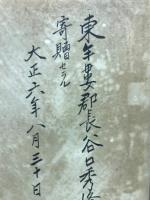 東牟婁郡長谷口秀
寄贈セラル
大正六年八月三十日